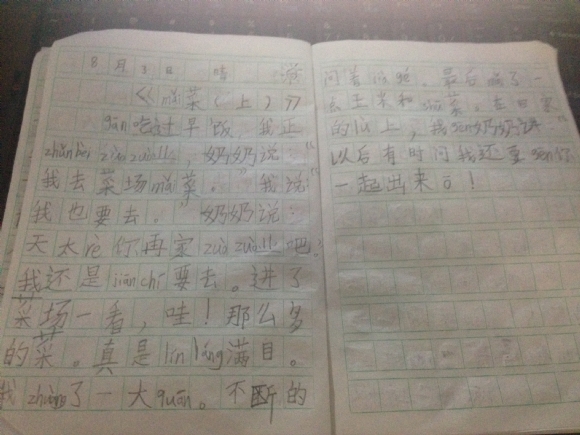 8月3日 晴
《mǎi菜(上)》
gāng吃过早饭,我正
zhǔnbèi zuò zuò yè,奶奶说:“
我去菜场mǎi菜。”我说:
我也要去。”奶奶说:
天太rè你再家zuò zuò yè吧。”
我还是jiān chí要去。进了
菜场一看,哇!那么多
的菜。真是lín láng满目。
我zhuàng了一大quān。不断的
问着价钱。最后mǎi了一
玉米和 菜。在回家
的lù上,我gēn奶奶讲
以后有时间我还要gēn你
一起出来ō!